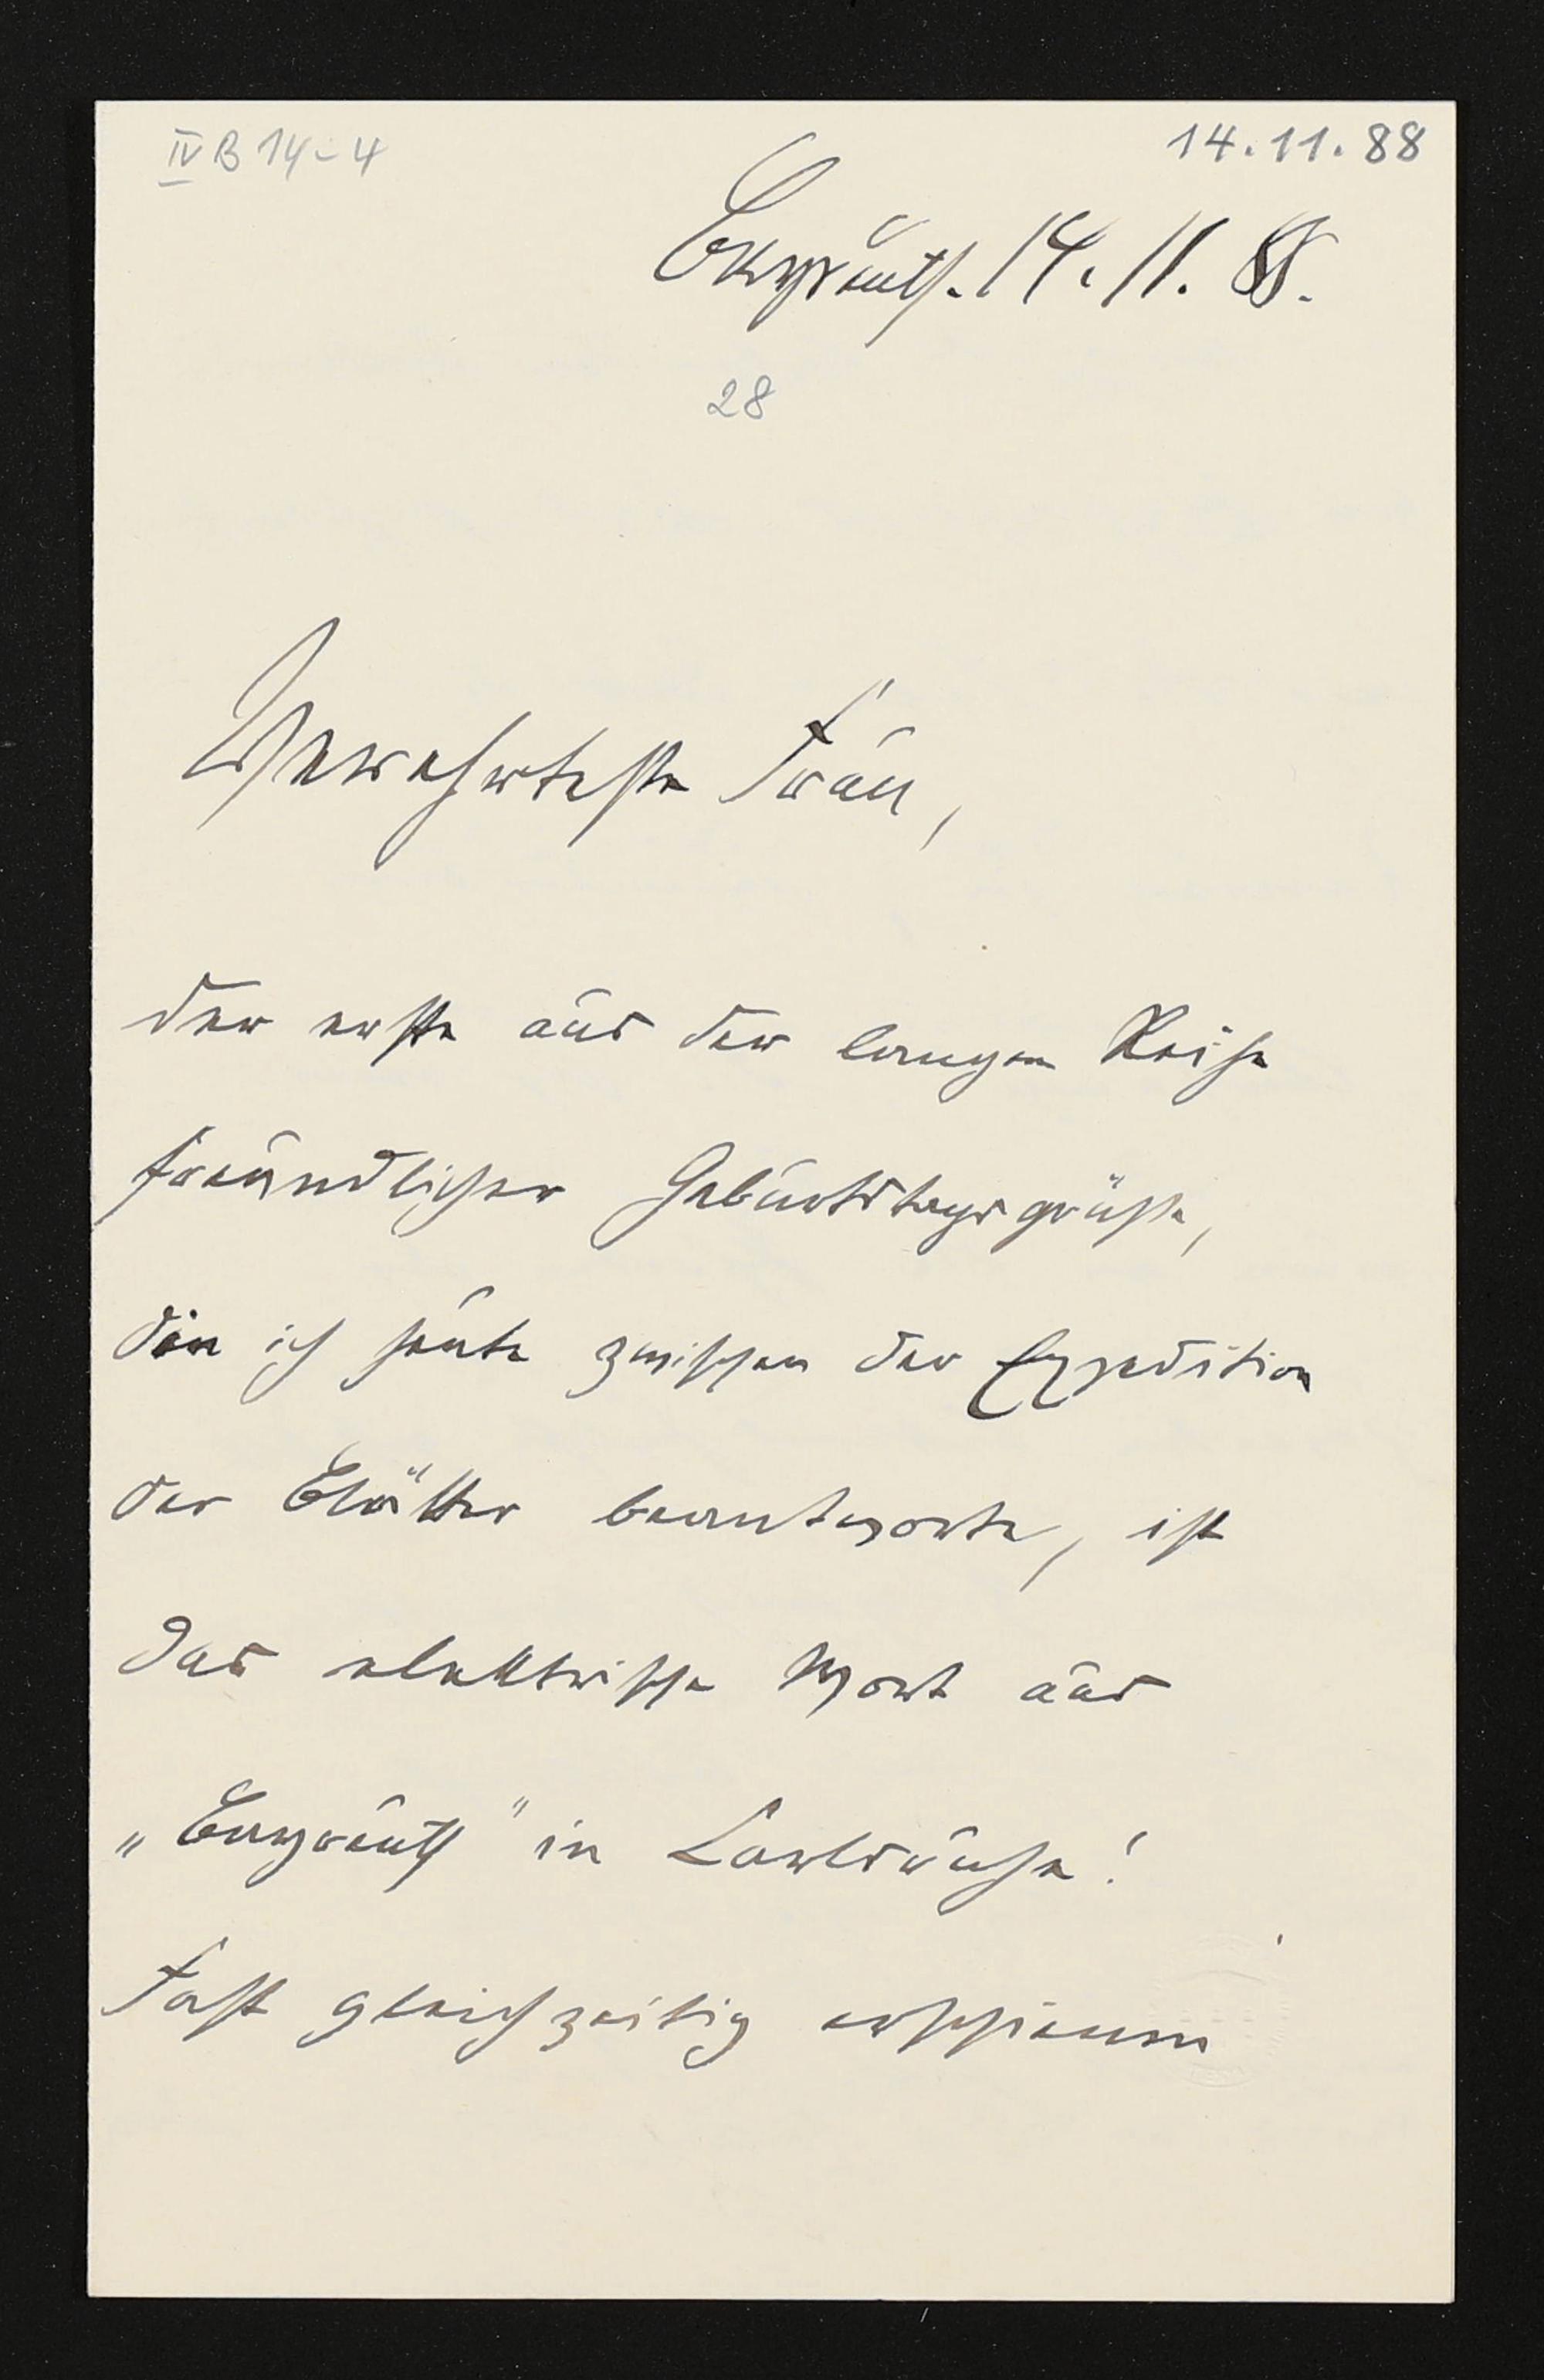 IV B 14-4
14.11.88
Bayreuth. 14. 11. 88.
28
Verehrteste Frau,
der erste aus der langen Reihe
freundlicher Geburtstagsgrüße,
die ich heute zwischen der Expedition
der Blätter beantworte, ist
das elektrische Wort aus
„Bayreuth" in Carlsruhe!
Fast gleichzeitig erschienen